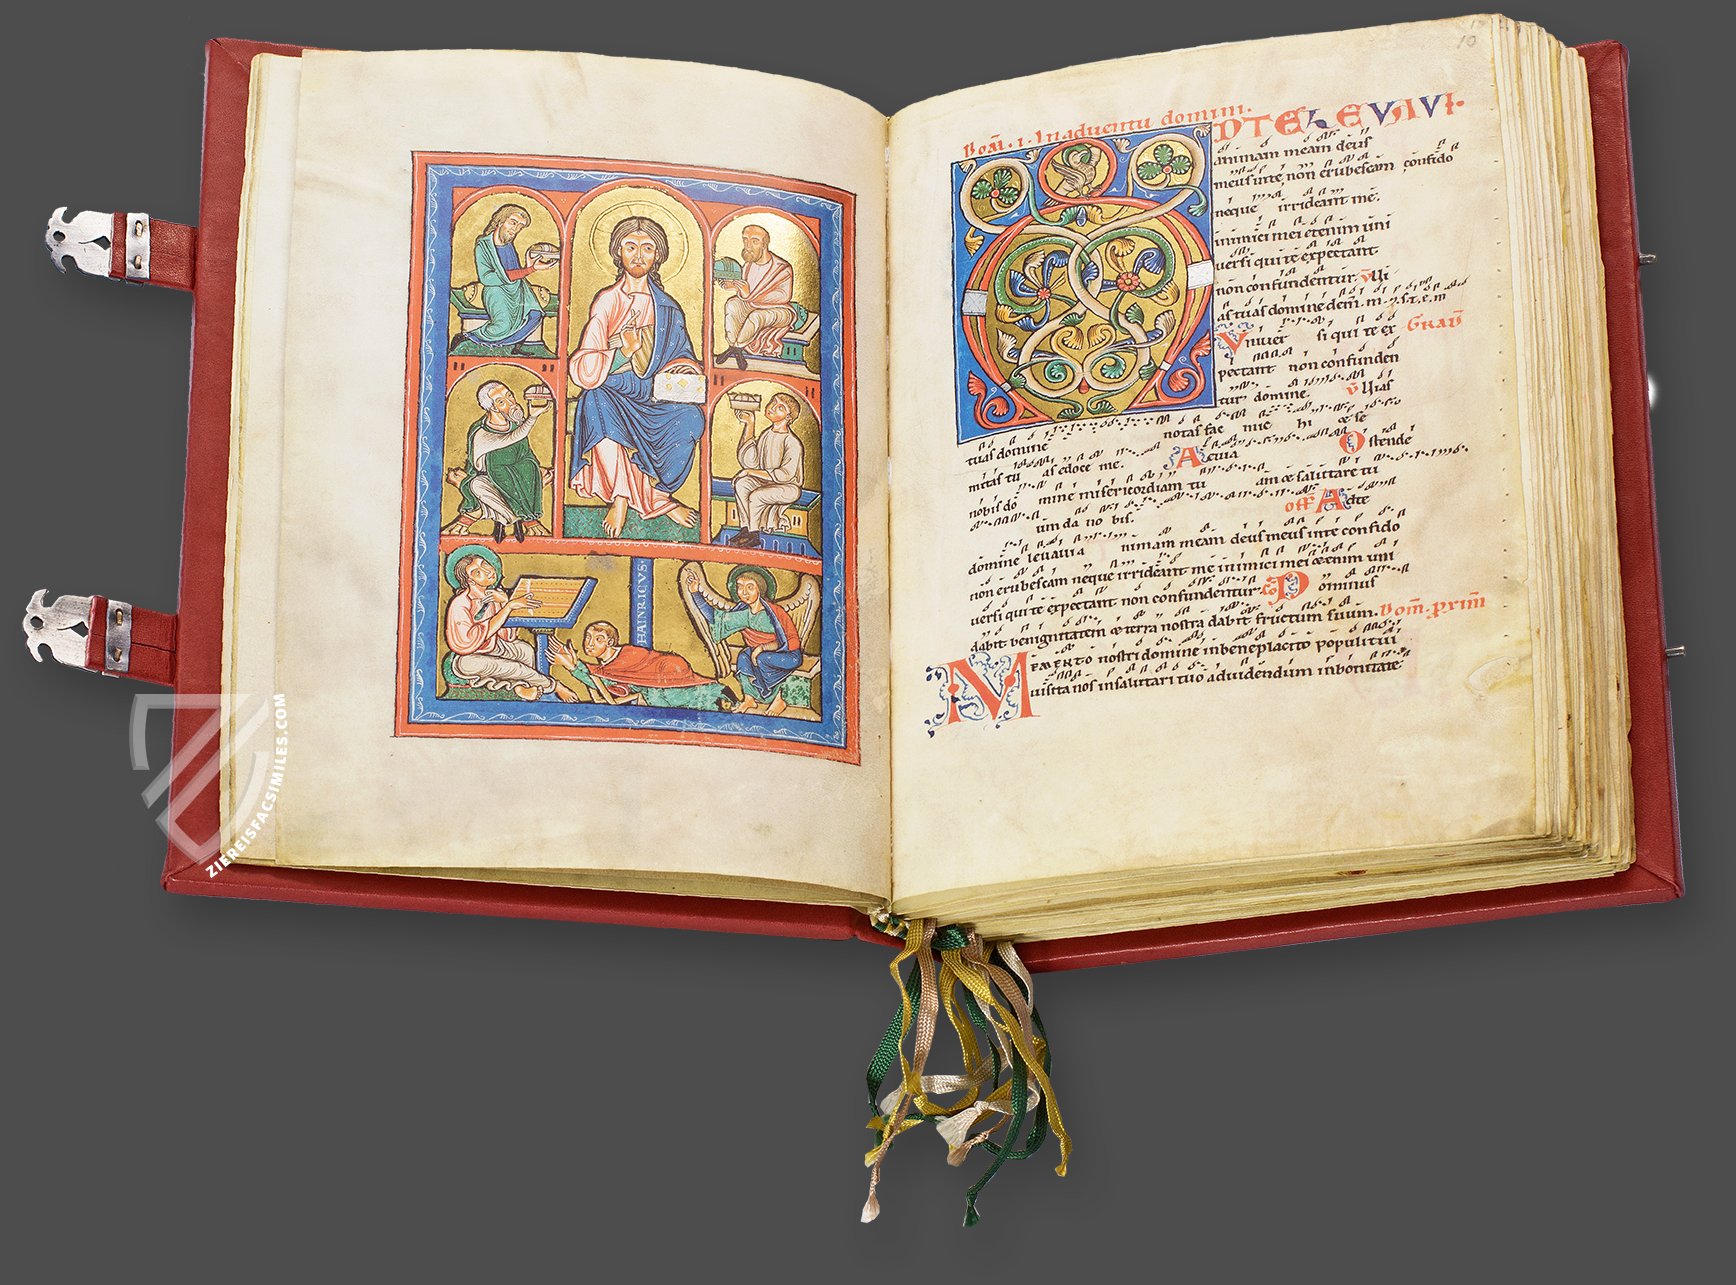 HAINRICVS·
10
Dom̄. i. In aduentu domini.
D TE LEVAVI.
animam meam deus
meus inte non erubescam confido
neque irrideant me.
inimici mei etenim uni
uersi qui te expectant
non confundentur. v̄ Vi
as tuas domine dem̄. m. γ. s. t. e. m
Vniuer si qui te ex GRAD̄
pectant non confunden
tur domine. v̄ Vias
tuas domine notas fac michi & se
mitas tu as edoce me. Aeuia Ostende
nobis dō mine misericordiam tu am & salutare tu
um da no bis. off Adte
domine leuaui a nimam meam deus meus inte confido
non erubescam neque irrideant me inimici mei &enim uni
uersi qui te expectant non confundentur. co Dominus
dabit benignitatem & terra nostra dabit fructum suum. Dom̄. prim̄
MEMENTO nostri domine inbeneplacito populi tui
uisita nos insalutari tuo aduidendum inbonitate
ZIEREISFACSIMILES.COM